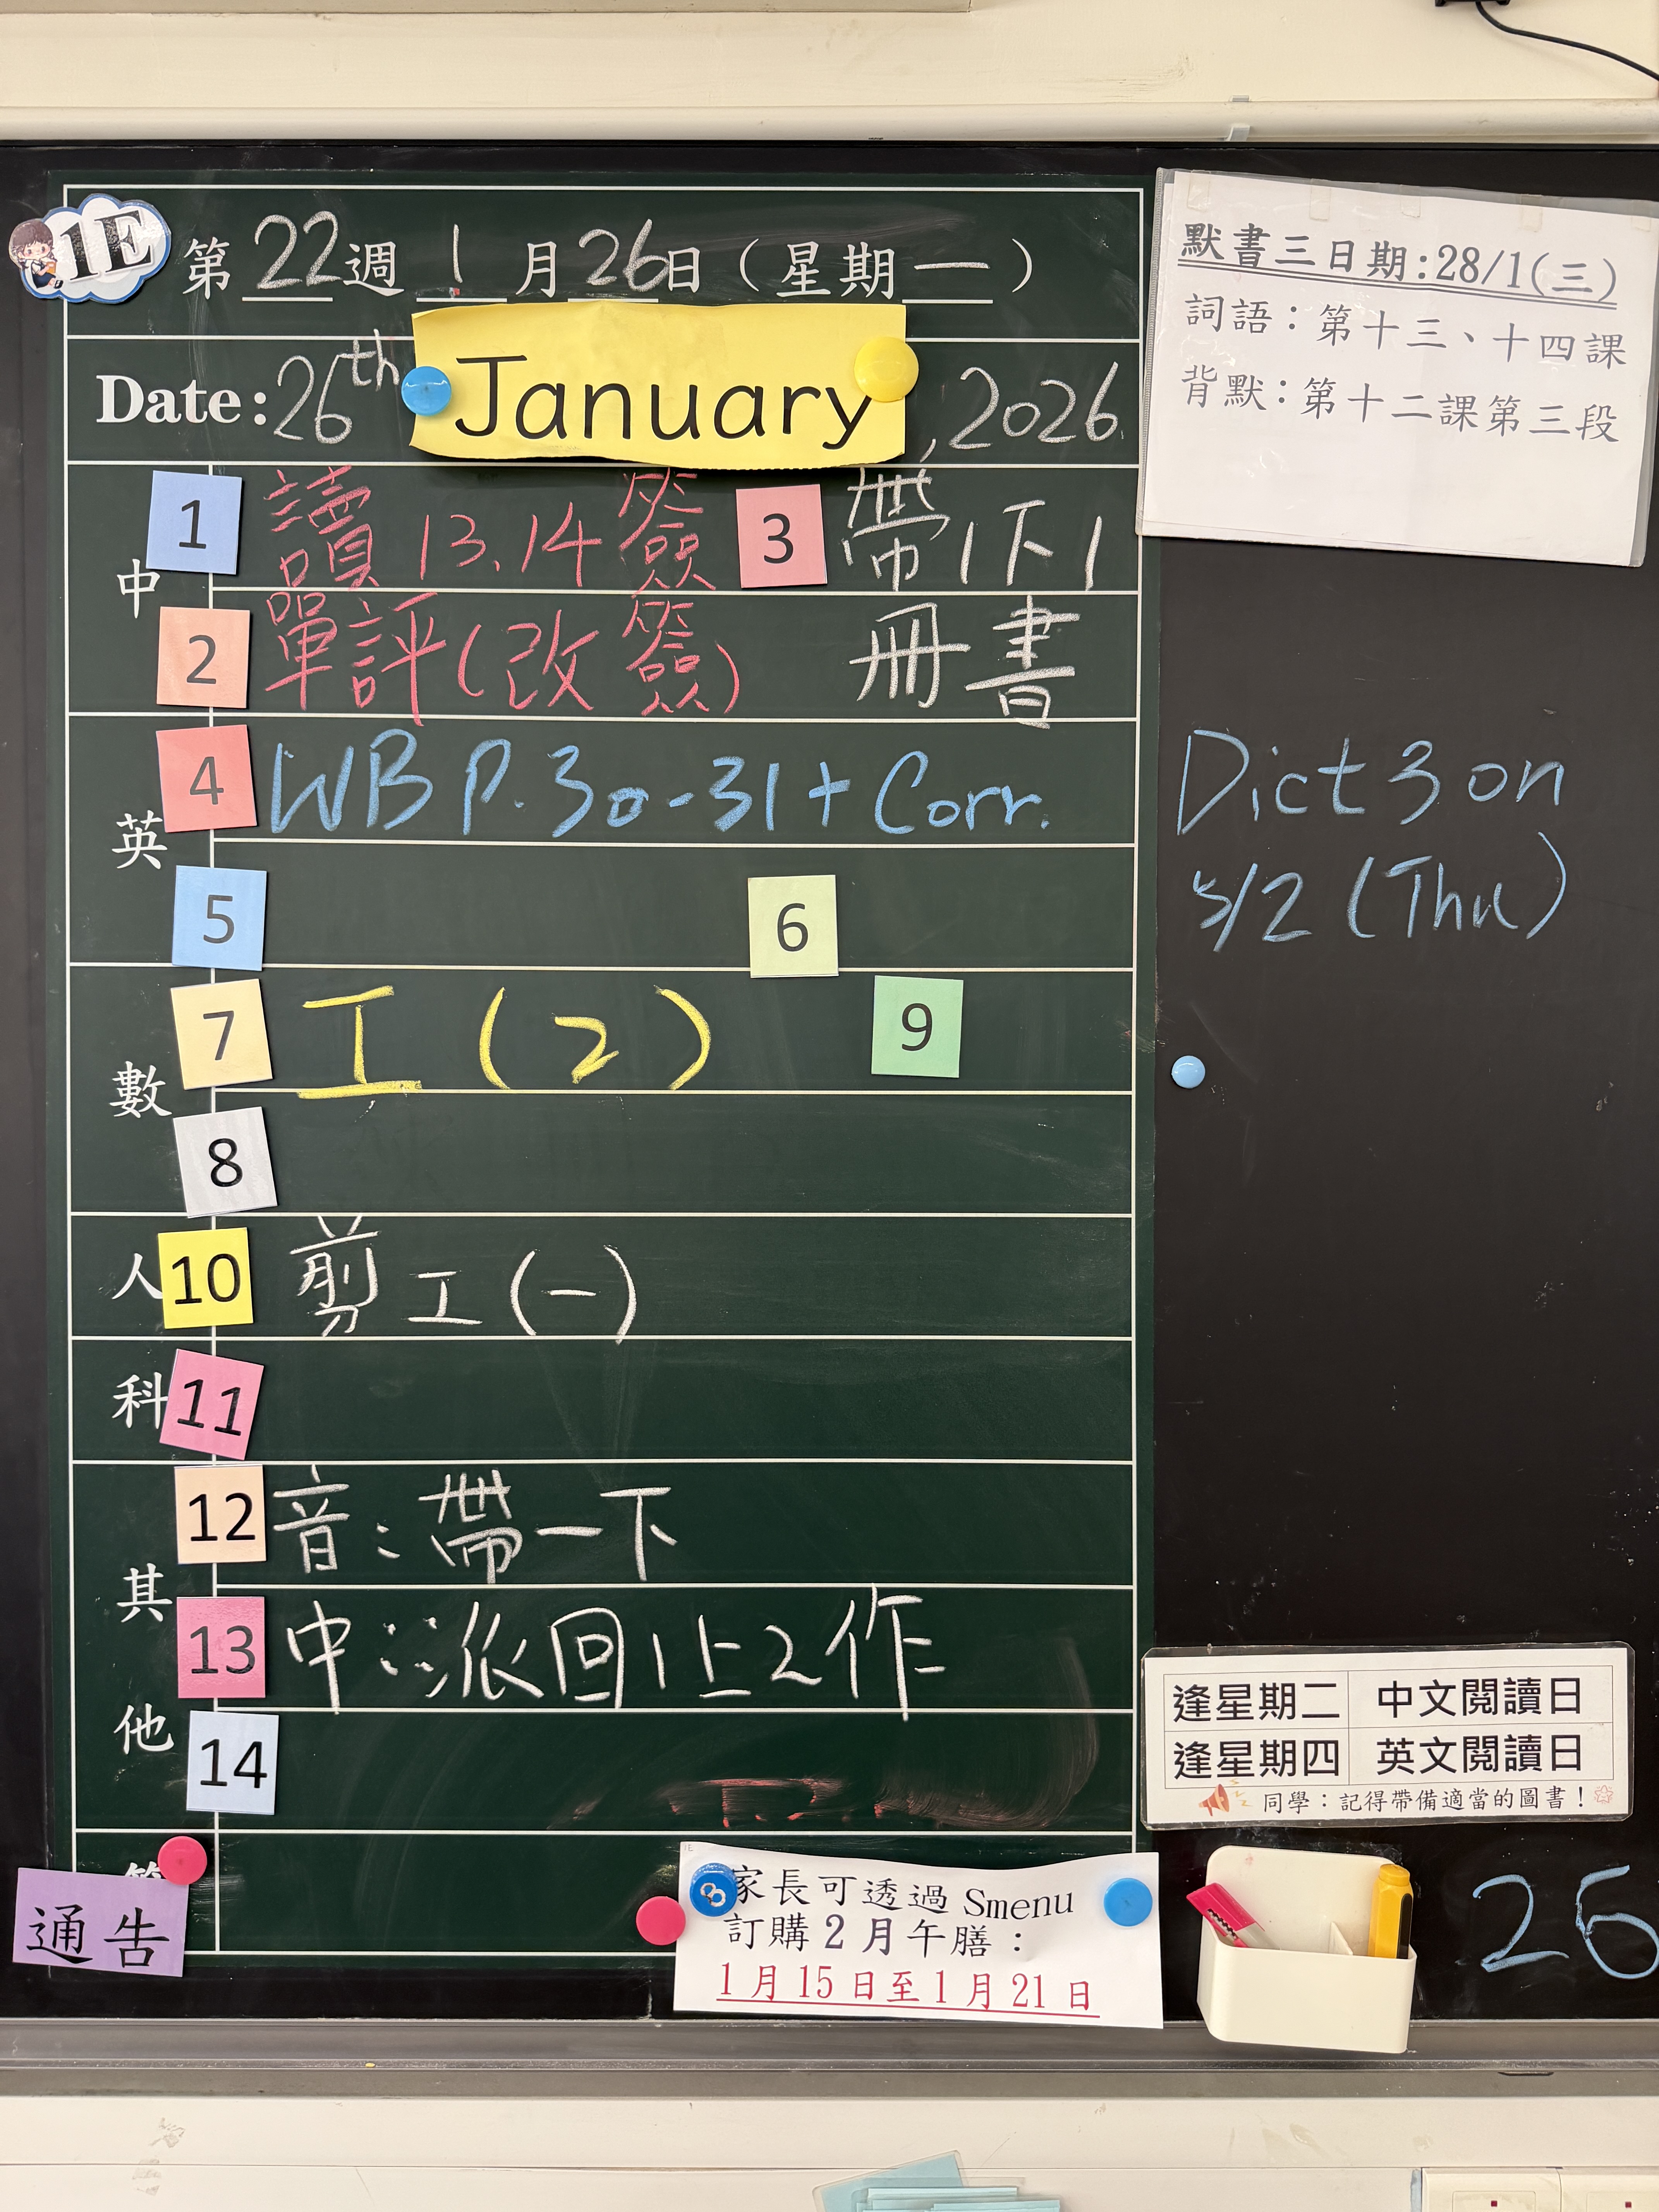 1E
第 22 週 1 月 26 日 ( 星期 一 )
Date: 26th January, 2026
中
1 讀 13, 14 簽
3 帶1下1
2 單評(改簽)
冊書
英
4 WB P.30-31 + Corr.
5
6
數
7 工 (2)
9
8
人
10 剪工(一)
科
11
其他
12 音：帶一下
13 中：派回1上2作
14
通告
家長可透過 Smenu
訂購 2 月午膳：
1 月 15 日至 1 月 21 日
默書三日期:28/1(三)
詞語：第十三、十四課
背默：第十二課第三段
Dict 3 on
5/2 (Thu)
逢星期二 中文閱讀日
逢星期四 英文閱讀日
同學：記得帶備適當的圖書！
26